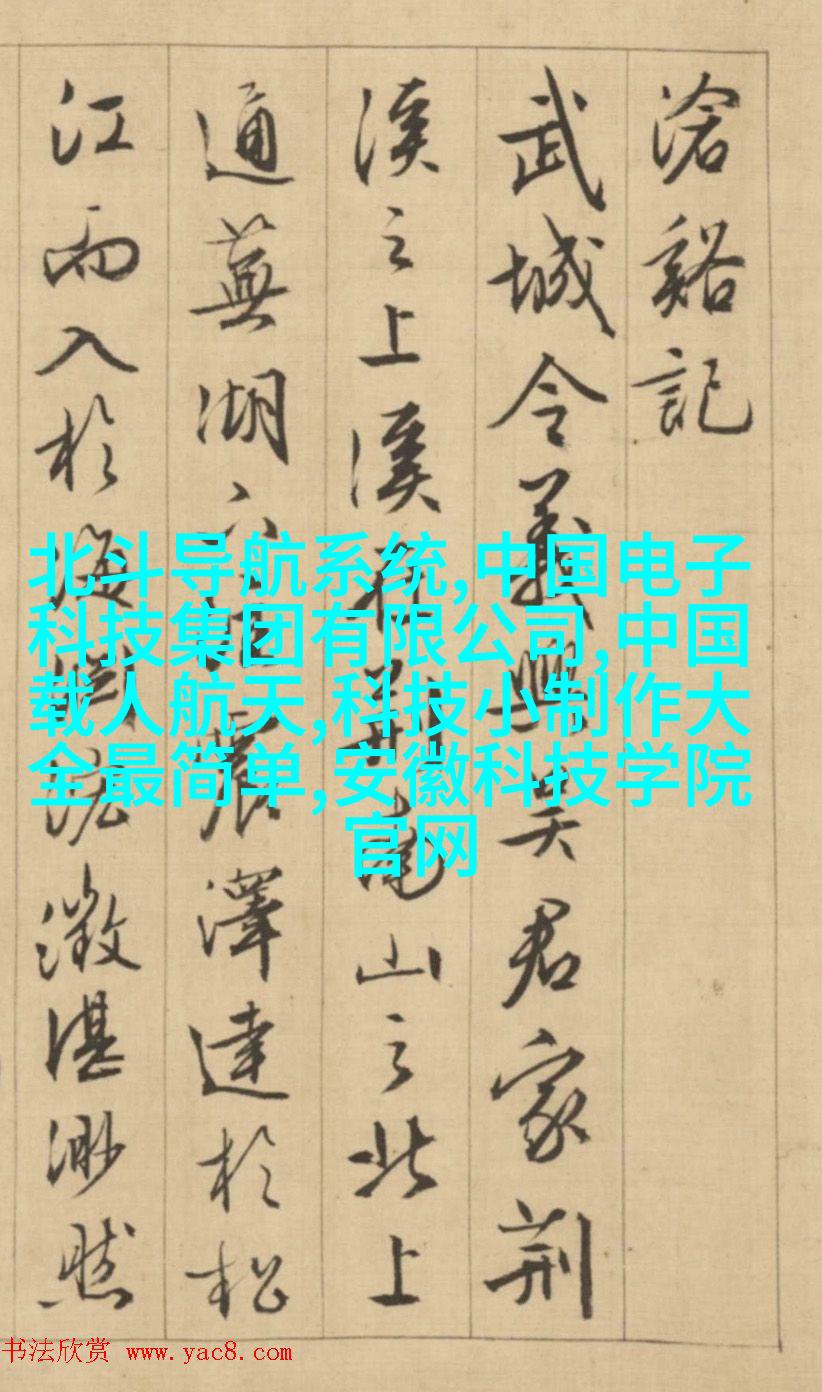 滄谿記
武城令義興吳君家荆
溪之上溪在荆南山之北上
通蕪湖
震澤達於松
江而入於海
澂湛渺然
北斗导航系统,中国电子
科技集团有限公司,中国
载人航天,科技小制作大
全最简单,安徽科技学院
官网
书法欣赏 www.yac8.com